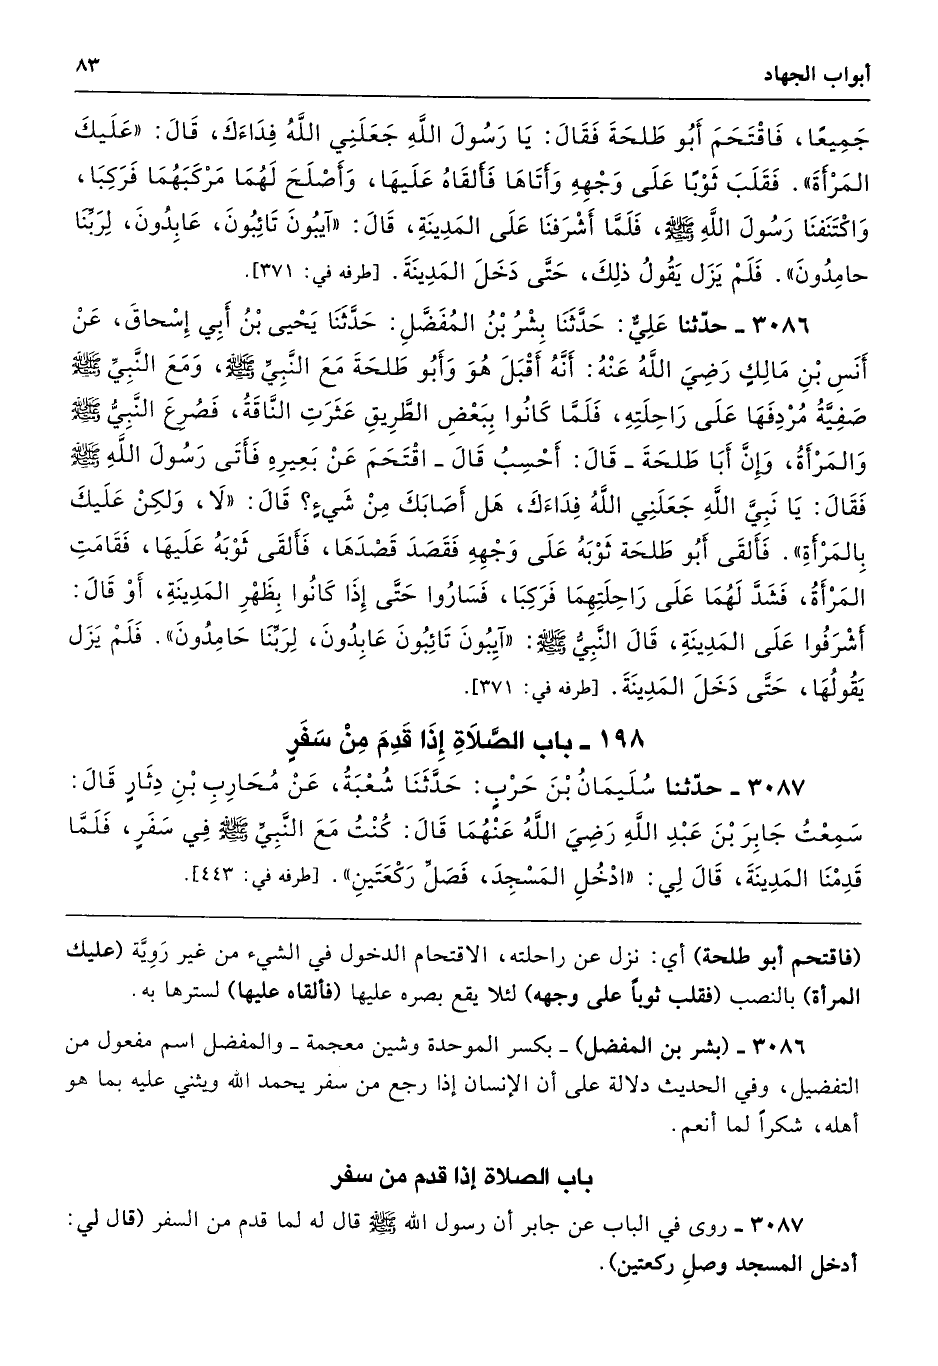 أبواب الجهاد
٨٣
جَمِيعًا، فَاقْتَحَمَ أَبُو طَلحَةَ فَقَالَ: يَا رَسُولَ اللَّهِ جَعَلَنِي اللَّهُ فِدَاءَكَ، قَالَ: «عَلَيكَ
المَرْأَةَ». فَقَلَبَ ثَوْبًا عَلَى وَجْهِهِ وَأَتَاهَا فَأَلقَاهُ عَلَيهَا، وَأَصْلَحَ لَهُمَا مَرْكَبَهُمَا فَرَكِبَا،
وَاكْتَنَفنَا رَسُولَ اللَّهِ ﷺ، فَلَمَّا أَشْرَفنَا عَلَى المَدِينَةِ، قَالَ: «آيبُونَ تَائِبُونَ، عَابِدُونَ، لِرَبِّنَا
حامِدُونَ». فَلَمْ يَزَل يَقُولُ ذلِكَ، حَتَّى دَخَلَ المَدِينَةَ. [طرفه في: ٣٧١].
٣٠٨٦ ـ حدّثنا عَلِيٌّ: حَدَّثَنَا بِشْرُ بْنُ المُفَضَّلِ: حَدَّثَنَا يَحْيى بْنُ أَبِي إِسْحاقَ، عَنْ
أَنَسِ بْنِ مَالِكٍ رَضِيَ اللَّهُ عَنْهُ: أَنَّهُ أَقْبَلَ هُوَ وَأَبُو طَلحَةَ مَعَ النَّبِيِّ ﷺ، وَمَعَ النَّبِيِّ ﷺ
صَفِيَّةُ مُرْدِفَهَا عَلَى رَاحِلَتِهِ، فَلَمَّا كَانُوا بِبَعْضِ الطَّرِيقِ عَثَرَتِ النَّاقَةُ، فَصُرِعَ النَّبِيُّ ﷺ
وَالمَرْأَةُ، وَإِنَّ أَبَا طَلحَةَ ـ قَالَ: أَحْسِبُ قَالَ ـ اقْتَحَمَ عَنْ بَعِيرِهِ فَأَتَى رَسُولَ اللَّهِ ﷺ
فَقَالَ: يَا نَبِيَّ اللَّهِ جَعَلَنِي اللَّهُ فِدَاءَكَ، هَل أَصَابَكَ مِنْ شَيءٍ؟ قَالَ: «لَا، وَلكِنْ عَلَيكَ
بِالمَرْأَةِ». فَأَلقَى أَبُو طَلحَة ثَوْبَهُ عَلَى وَجْهِهِ فَقَصَدَ قَصْدَهَا، فَأَلقَى ثَوْبَهُ عَلَيهَا، فَقَامَتِ
المَرْأَةُ، فَشَدَّ لَهُمَا عَلَى رَاحِلَتِهِمَا فَرَكِبَا، فَسَارُوا حَتَّى إِذَا كَانُوا بِظَهْرِ المَدِينَةِ، أَوْ قَالَ:
أَشْرَفُوا عَلَى المَدِينَةِ، قَالَ النَّبِيُّ ﷺ: «آيبُونَ تَائِبُونَ عَابِدُونَ، لِرَبِّنَا حَامِدُونَ». فَلَمْ يَزَل
يَقُولُهَا، حَتَّى دَخَلَ المَدِينَةَ. [طرفه في: ٣٧١].
١٩٨ ـ باب الصَّلَاةِ إِذَا قَدِمَ مِنْ سَفَرٍ
٣٠٨٧ ـ حدّثنا سُلَيمَانُ بْنُ حَرْبٍ: حَدَّثَنَا شُعْبَةُ، عَنْ مُحَارِبِ بْنِ دِثَارٍ قَالَ:
سَمِعْتُ جَابِرَ بْنَ عَبْدِ اللَّهِ رَضِيَ اللَّهُ عَنْهُمَا قَالَ: كُنْتُ مَعَ النَّبِيِّ ﷺ فِي سَفَرٍ، فَلَمَّا
قَدِمْنَا المَدِينَةَ، قَالَ لِي: «ادْخُلِ المَسْجِدَ، فَصَلِّ رَكْعَتَينِ». [طرفه في: ٤٤٣].
(فاقتحم أبو طلحة) أي: نزل عن راحلته، الاقتحام الدخول في الشيء من غير رَوِيَّة (عليك
المرأة) بالنصب (فقلب ثوباً على وجهه) لئلا يقع بصره عليها (فألقاه عليها) لسترها به.
٣٠٨٦ ـ (بشر بن المفضل) ـ بكسر الموحدة وشين معجمة ـ والمفضل اسم مفعول من
التفضيل، وفي الحديث دلالة على أن الإنسان إذا رجع من سفر يحمد الله ويثني عليه بما هو
أهله، شكراً لما أنعم.
باب الصلاة إذا قدم من سفر
٣٠٨٧ ـ روى في الباب عن جابر أن رسول الله ﷺ قال له لما قدم من السفر (قال لي:
أدخل المسجد وصلِ ركعتين).